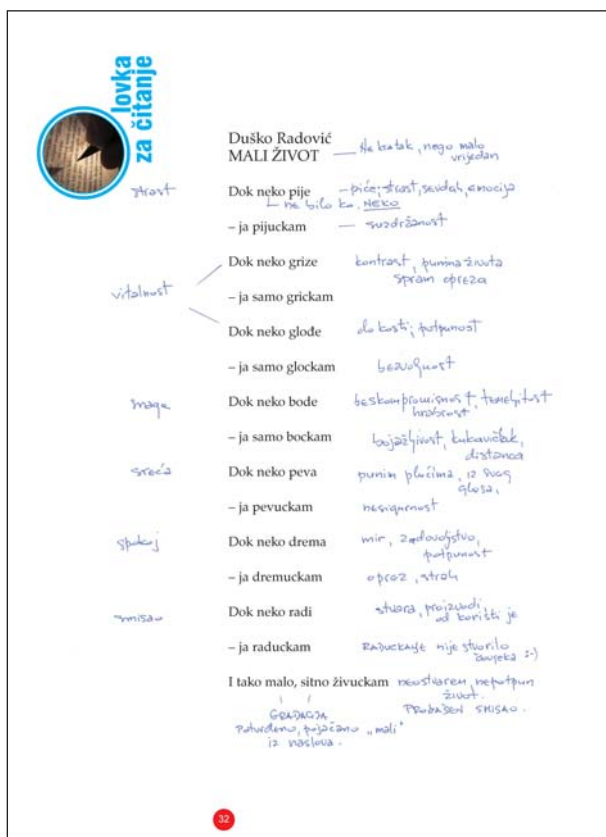 lovka
za čitanje
Duško Radović
MALI ŽIVOT — Ne kratak, nego malo
vrijedan
strast
Dok neko pije – piće, strast, sevdah, emocija
ne bilo ko, NEKO
– ja pijuckam — suzdržanost
Dok neko grize kontrast, punina života
spram opreza
vitalnost
– ja samo grickam
Dok neko glođe do kosti, potpunost
– ja samo glockam bezvoljnost
snaga
Dok neko bode beskompromisnost, temeljitost
hrabrost
– ja samo bockam bojažljivost, kukavičluk,
distanca
sreća
Dok neko peva punim plućima, iz sveg
glasa,
– ja pevuckam nesigurnost
spokoj
Dok neko drema mir, zadovoljstvo,
potpunost
– ja dremuckam oprez, strah
smisao
Dok neko radi stvara, proizvodi,
od koristi je
– ja raduckam RADUCKANJE nije stvorilo
čovjeka :-)
I tako malo, sitno živuckam neostvaren, nepotpun
život.
GRADACIJA
SMISAO.
Potvrđeno, pojačano „mali"
iz naslova.
32